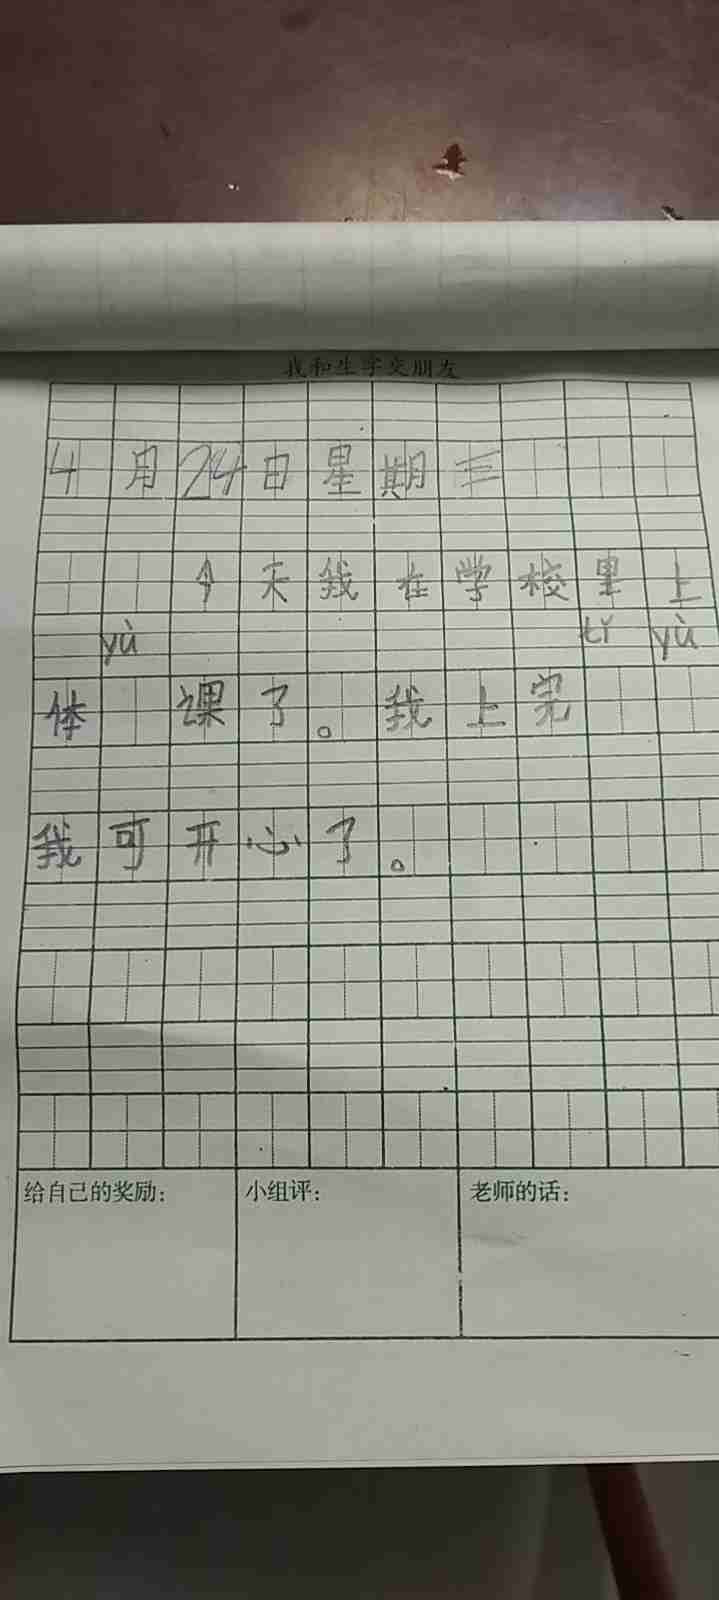 我和生字交朋友
4月24日星期三
今天我在学校里上
yù tǐ yù
体 课了。我上完
我可开心了。
给自己的奖励： 小组评： 老师的话：